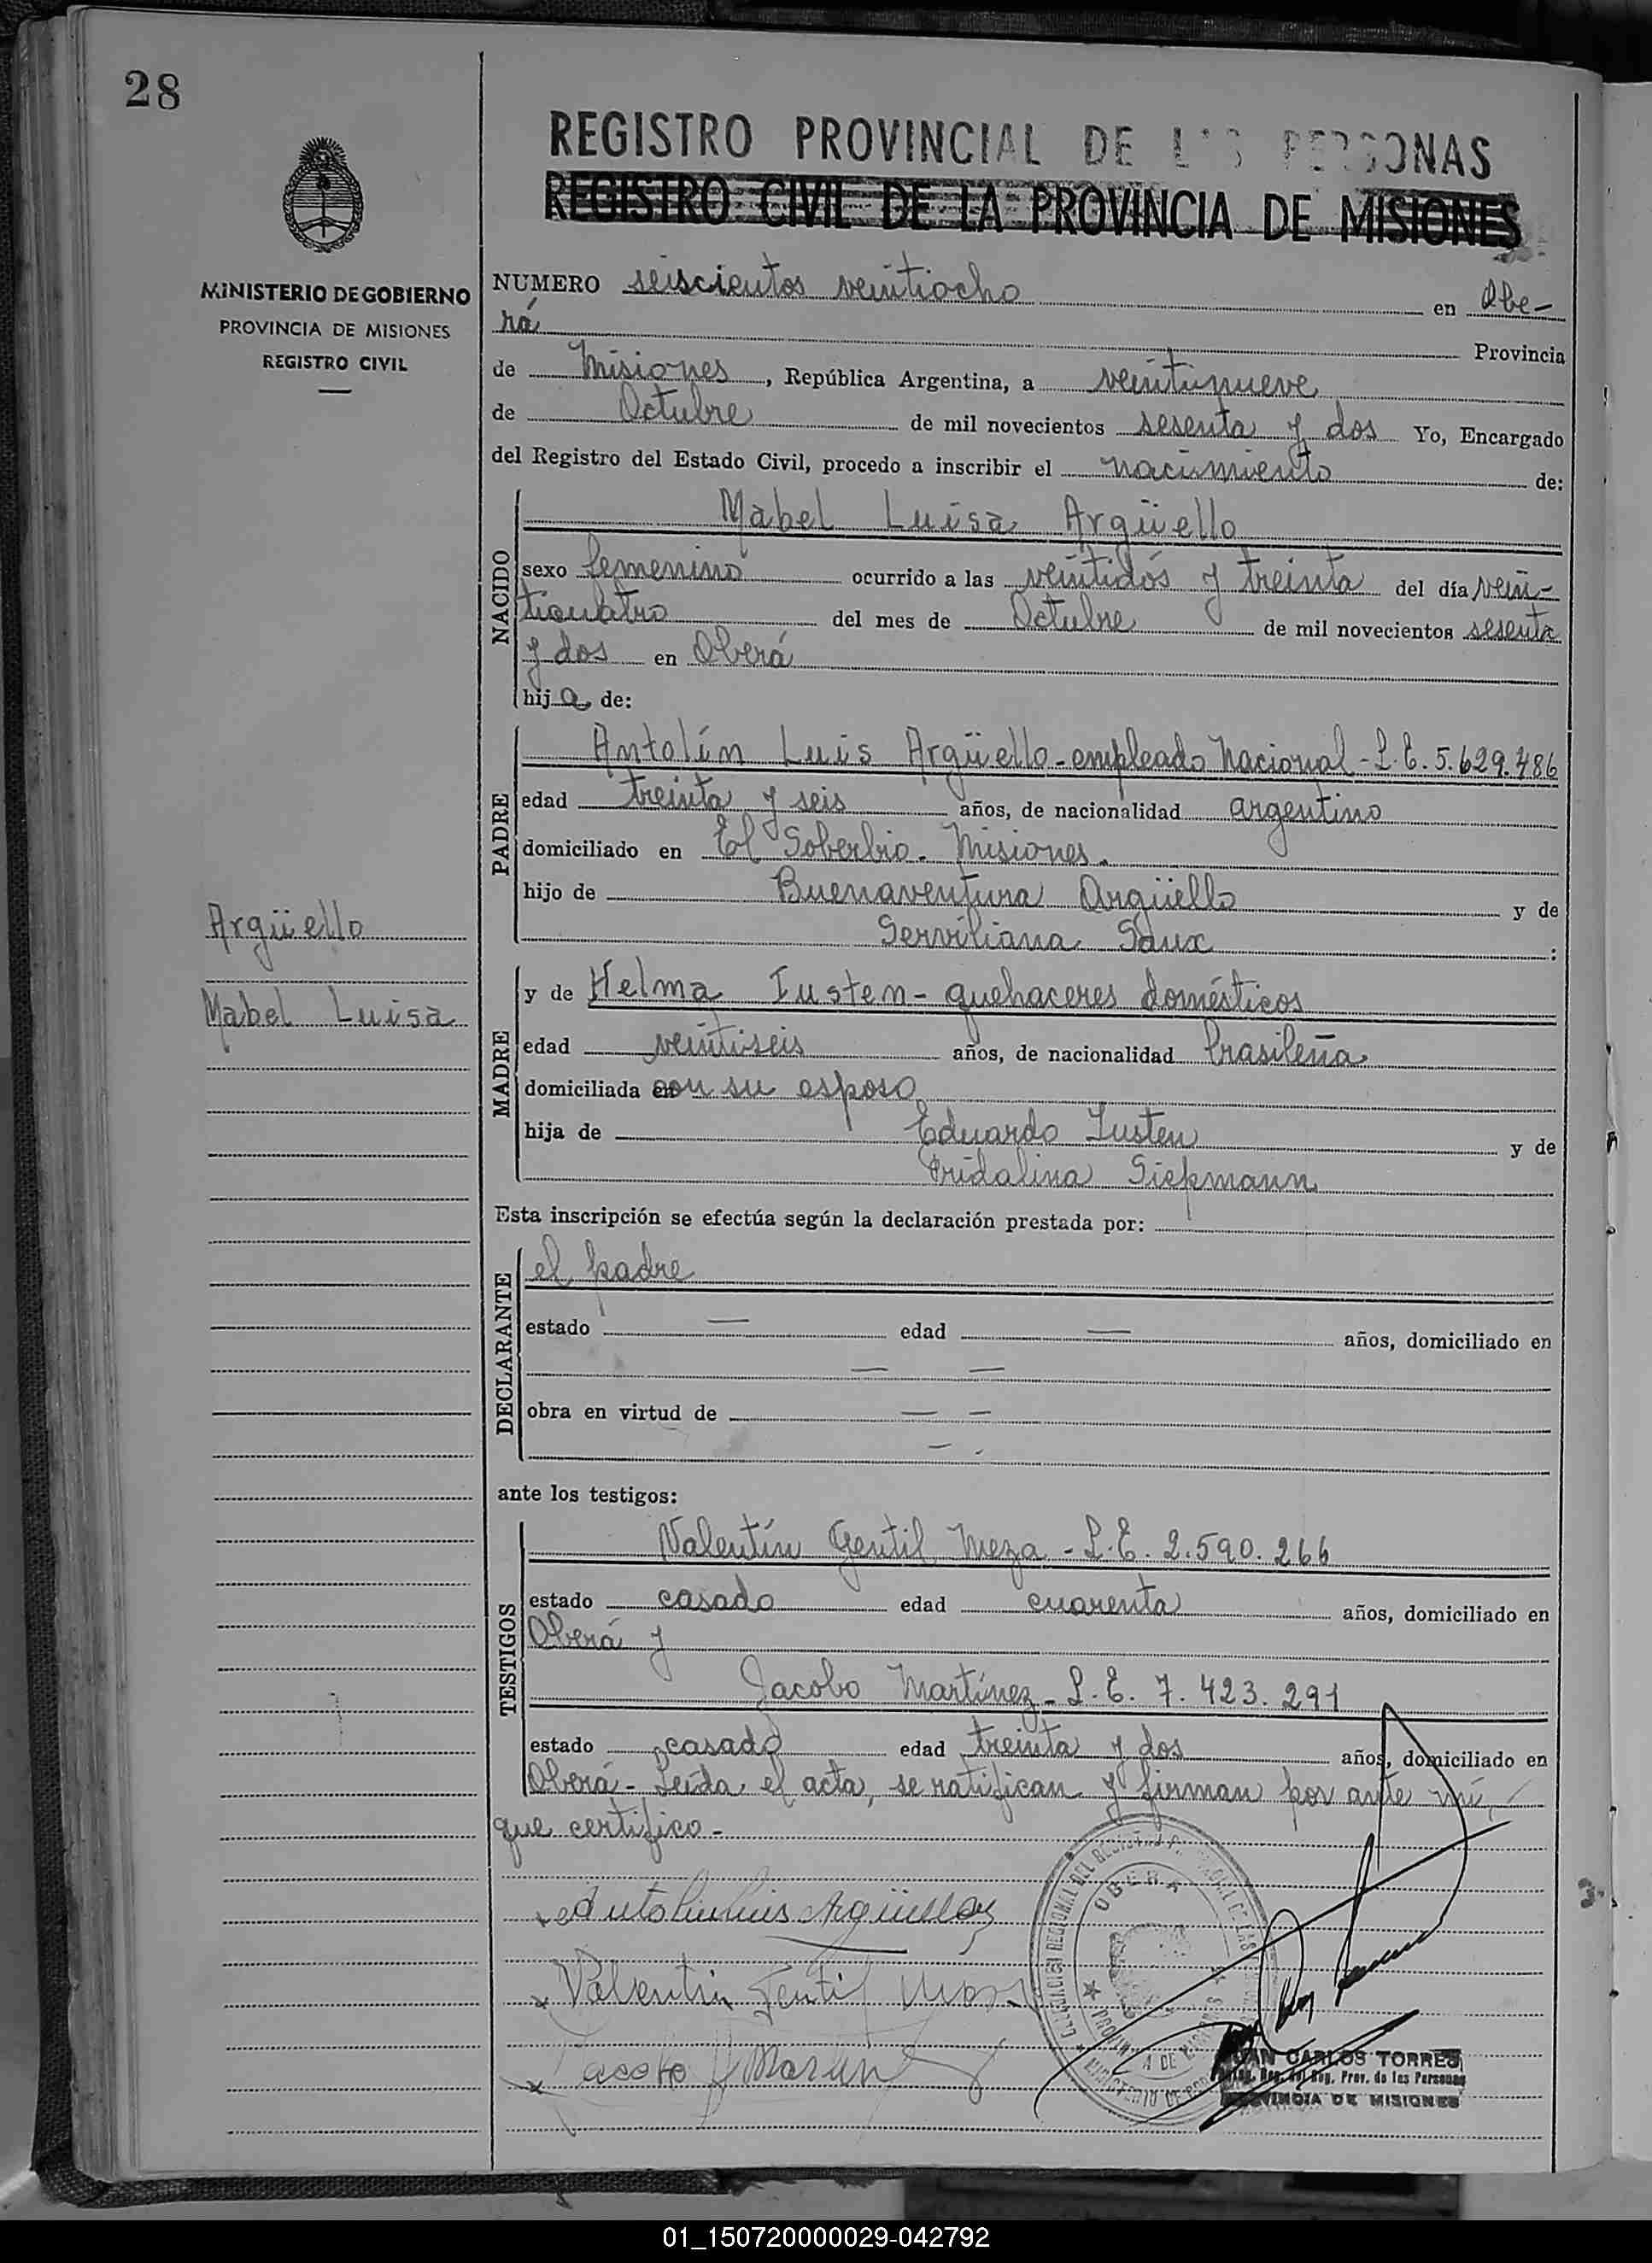 28
MINISTERIO DE GOBIERNO
PROVINCIA DE MISIONES
REGISTRO CIVIL
Argüello
Mabel Luisa
REGISTRO PROVINCIAL DE LAS PERSONAS
REGISTRO CIVIL DE LA PROVINCIA DE MISIONES
NUMERO seiscientos veintiocho en Obe-
rá Provincia
de Misiones, República Argentina, a veintinueve
de Octubre de mil novecientos sesenta y dos Yo, Encargado
del Registro del Estado Civil, procedo a inscribir el nacimiento de:
NACIDO
Mabel Luisa Argüello
sexo femenino ocurrido a las veintidós y treinta del día vein-
ticuatro del mes de Octubre de mil novecientos sesenta
y dos en Oberá
hija de:
PADRE
Antolín Luis Argüello - empleado Nacional - L.E. 5.629.486
edad treinta y seis años, de nacionalidad argentino
domiciliado en El Soberbio - Misiones.
hijo de Buenaventura Argüello y de
Serviliana Saux :
MADRE
y de Helma Iusten - quehaceres domésticos
edad veintiseis años, de nacionalidad brasileña
domiciliada con su esposo
hija de Eduardo Iusten y de
Fridolina Siepmann
Esta inscripción se efectúa según la declaración prestada por:
DECLARANTE
el padre
estado — edad — años, domiciliado en
— —
obra en virtud de — —
— .
ante los testigos:
TESTIGOS
Valentín Gentil Meza - L.E. 2.590.266
estado casado edad cuarenta años, domiciliado en
Oberá y
Jacobo Martínez - L.E. 7.423.291
estado casado edad treinta y dos años, domiciliado en
Oberá - Leída el acta, se ratifican y firman por ante mí,
que certifico -
Antolin Luis Argüello
Valentin Gentil Meza
Jacobo Martinez
OBERA
PROVINCIA DE MISIONES
JUAN CARLOS TORRES
Reg. Prov. de las Personas
PROVINCIA DE MISIONES
01_150720000029-042792